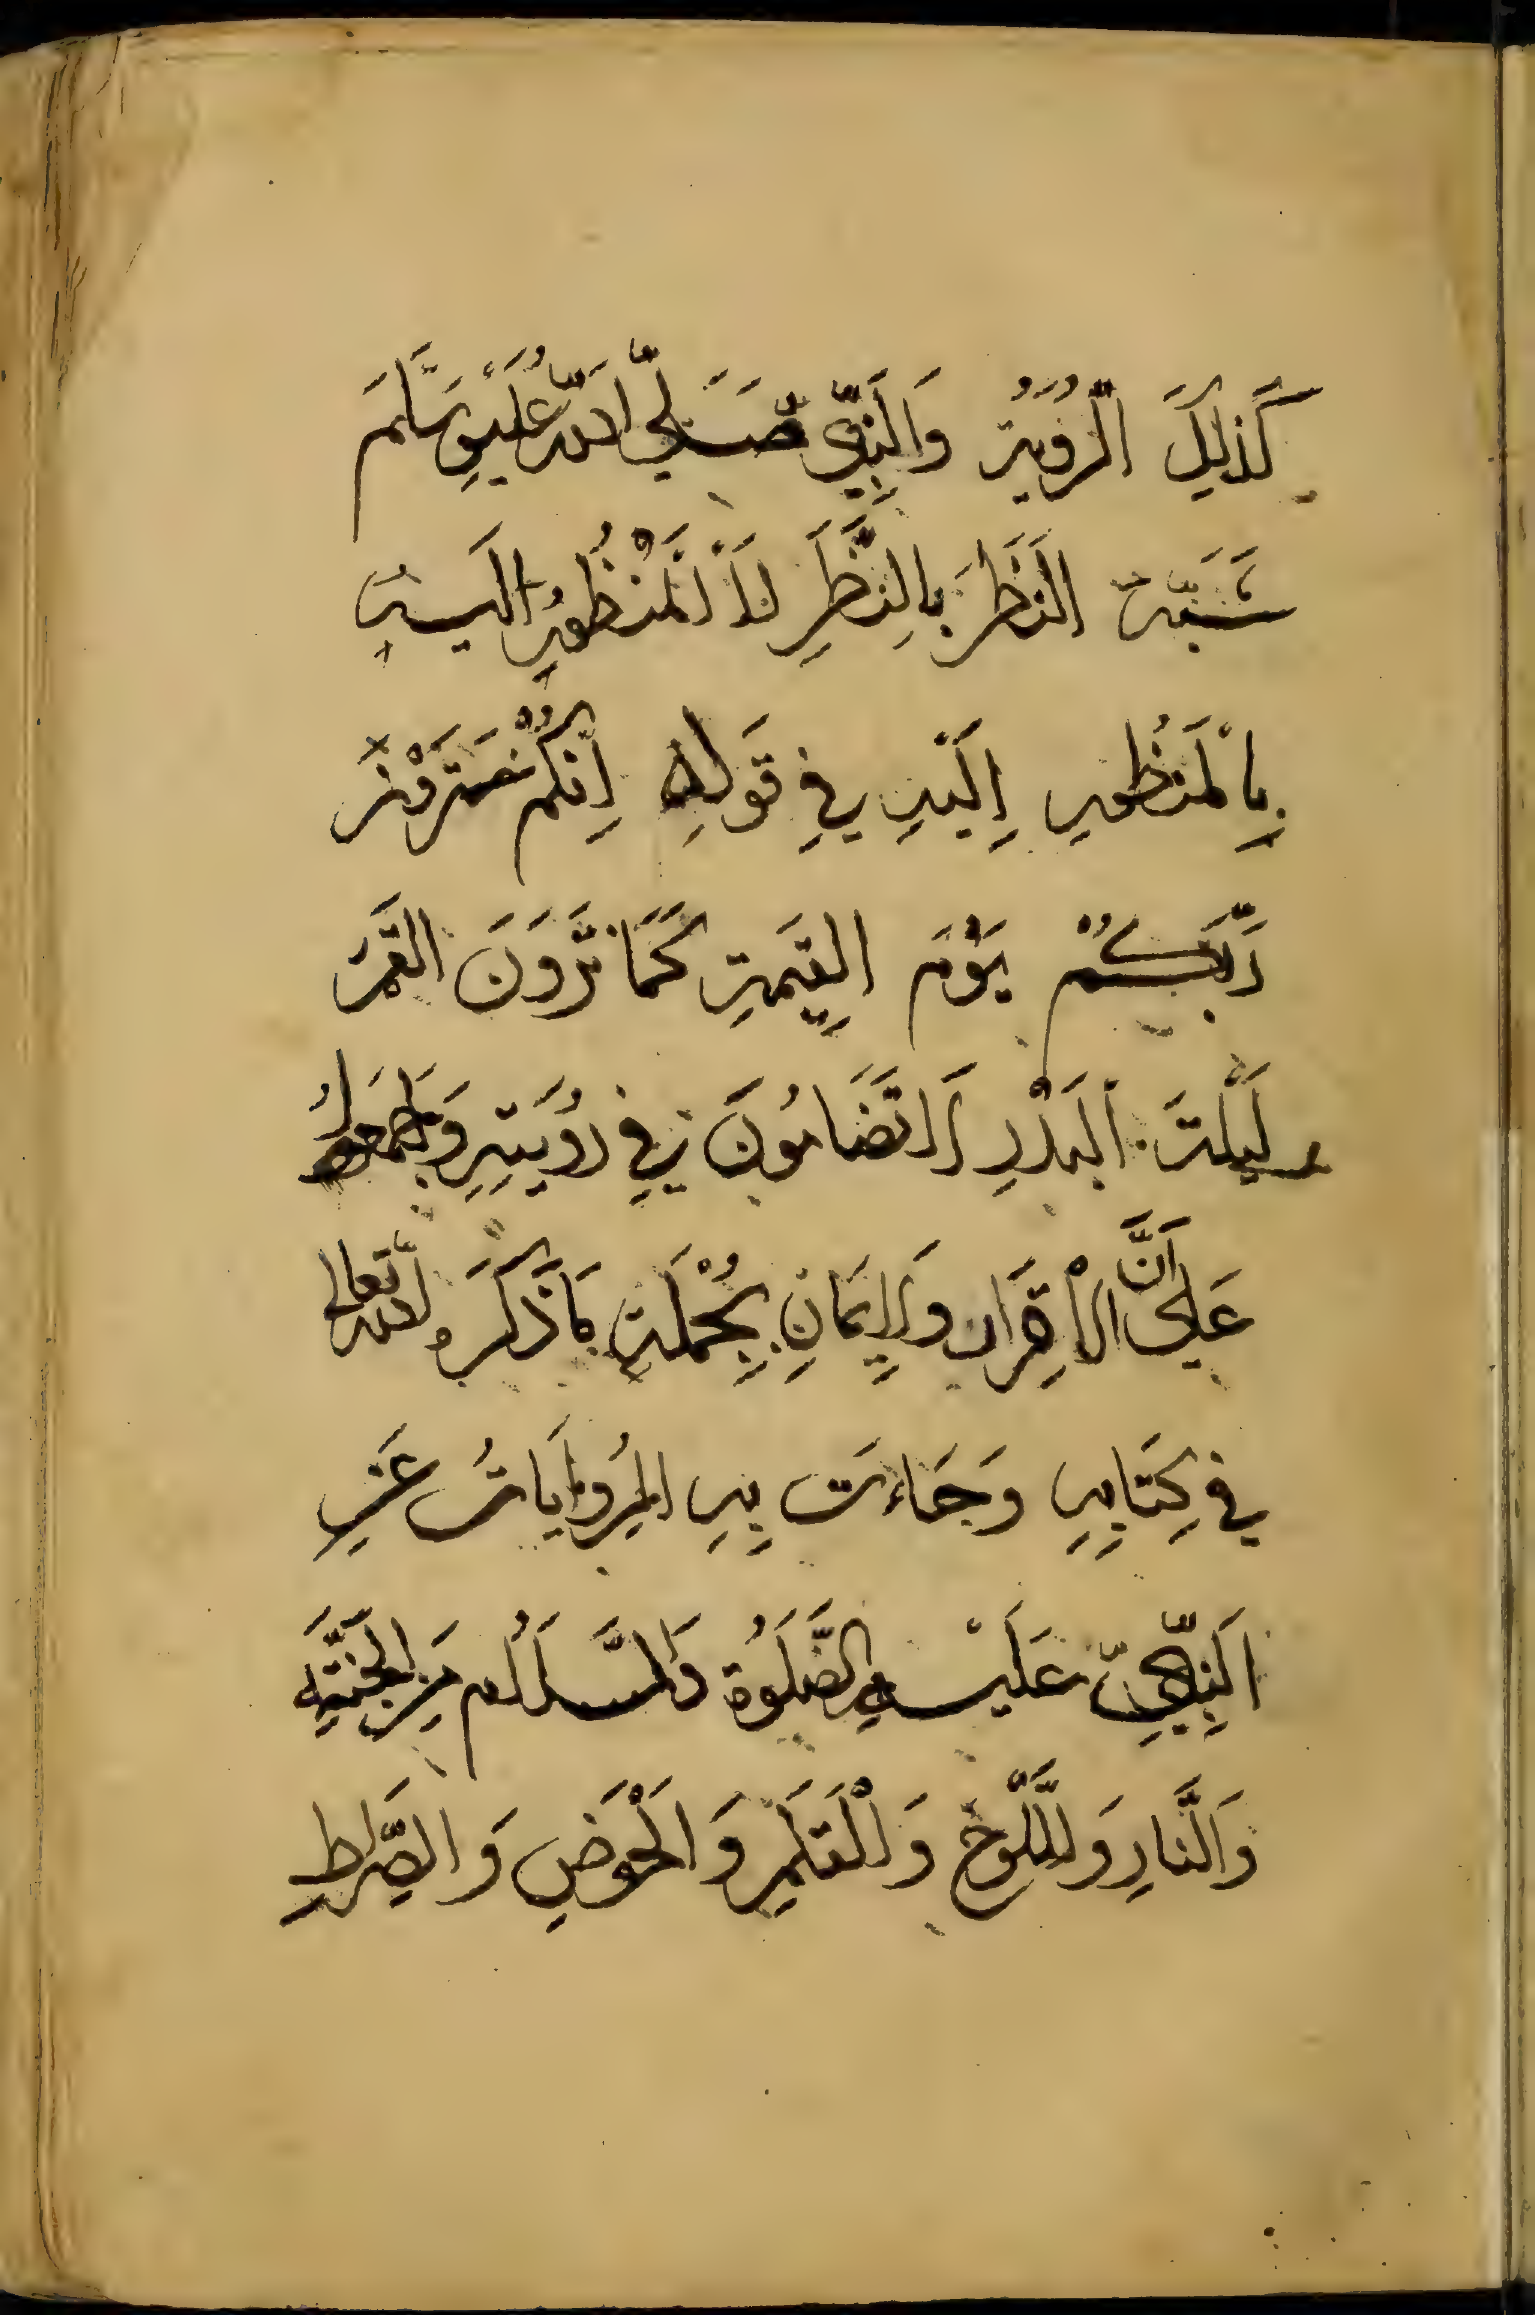 كَذٰلِكَ الرُّؤْيَة وَالنَّبِيّ صَلَّى اللّٰهُ عَلَيْهِ وَسَلَّمَ
شَبَّهَ النَّظَرَ بِالنَّظَرِ لَا الْمَنْظُورِ اِلَيْهِ
بِالْمَنْظُورِ اِلَيْهِ فِي قَوْلِهِ اِنَّكُمْ سَتَرَوْنَ
رَبَّكُمْ يَوْمَ الْقِيٰمَةِ كَمَا تَرَوْنَ الْقَمَرَ
لَيْلَةَ الْبَدْرِ لَا تَضَامُونَ فِي رُؤْيَتِهِ وَاَجْمَعُوا
عَلٰى اَنَّ الْاِقْرَار وَالْاِيمَانِ بِجُمْلَةِ مَا ذَكَرَ اللّٰه تعالى
فِي كِتَابِهِ وَجَاءَت بِهِ الرِّوَايَاتُ عَنِ
النَّبِيِّ عَلَيْهِ الصَّلَوٰةُ وَالسَّلَامُ مِنَ الْجَنَّةِ
وَالنَّارِ وَاللَّوْحِ وَالْقَلَمِ وَالْحَوْضِ وَالصِّرَاطِ